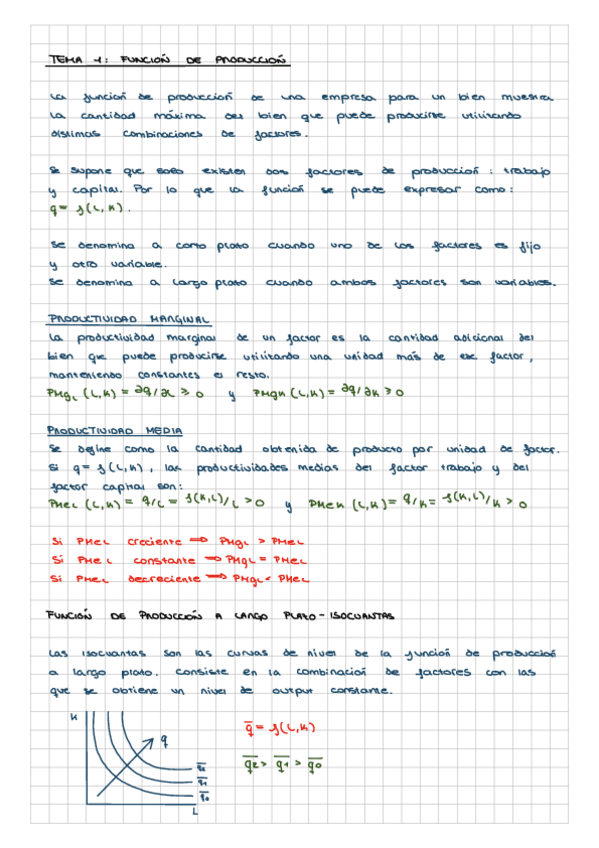 TEMA 1: FUNCIÓN DE PRODUCCIÓN
La función de producción de una empresa para un bien muestra
la cantidad máxima del bien que puede producirse utilizando
distintas combinaciones de factores.
Se supone que solo existen dos factores de producción: trabajo
y capital. Por lo que la función se puede expresar como:
q = f(L,K).
Se denomina a corto plazo cuando uno de los factores es fijo
y otro variable.
Se denomina a largo plazo cuando ambos factores son variables.
PRODUCTIVIDAD MARGINAL
La productividad marginal de un factor es la cantidad adicional del
bien que puede producirse utilizando una unidad más de ese factor,
manteniendo constantes el resto.
PMgL (L,K) = ∂q/∂L ≥ 0 y PMgK (L,K) = ∂q/∂K ≥ 0
PRODUCTIVIDAD MEDIA
Se define como la cantidad obtenida de producto por unidad de factor.
Si q = f(L,K), las productividades medias del factor trabajo y del
factor capital son:
PMeL (L,K) = q/L = f(K,L)/L > 0 y PMeK (L,K) = q/K = f(K,L)/K > 0
Si PMeL creciente ⇒ PMgL > PMeL
Si PMeL constante ⇒ PMgL = PMeL
Si PMeL decreciente ⇒ PMgL < PMeL
FUNCIÓN DE PRODUCCIÓN A LARGO PLAZO - ISOCUANTAS
Las isocuantas son las curvas de nivel de la función de producción
a largo plazo. Consiste en la combinación de factores con las
que se obtiene un nivel de output constante.
K
q
q̄2
q̄1
q̄0
L
q̄ = f(L,K)
q̄2 > q̄1 > q̄0